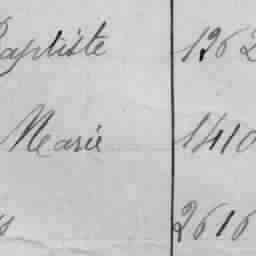 Baptiste 1262
Marie 1410
2616